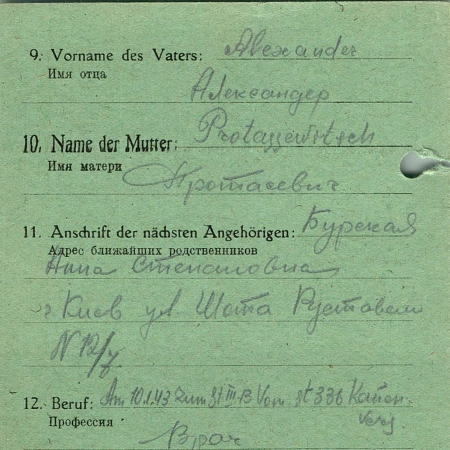 9. Vorname des Vaters: Alexander
Имя отца
Александер
10. Name der Mutter: Protassewitsch
Имя матери
Протасевич
11. Anschrift der nächsten Angehörigen: Бурская
Адрес ближайших родственников
Анна Степановна
г Киев ул Шота Руставели
N 12/
12. Beruf: Am 10.1.43 zum St III B Vom St 336 Kauen
Профессия
Врач